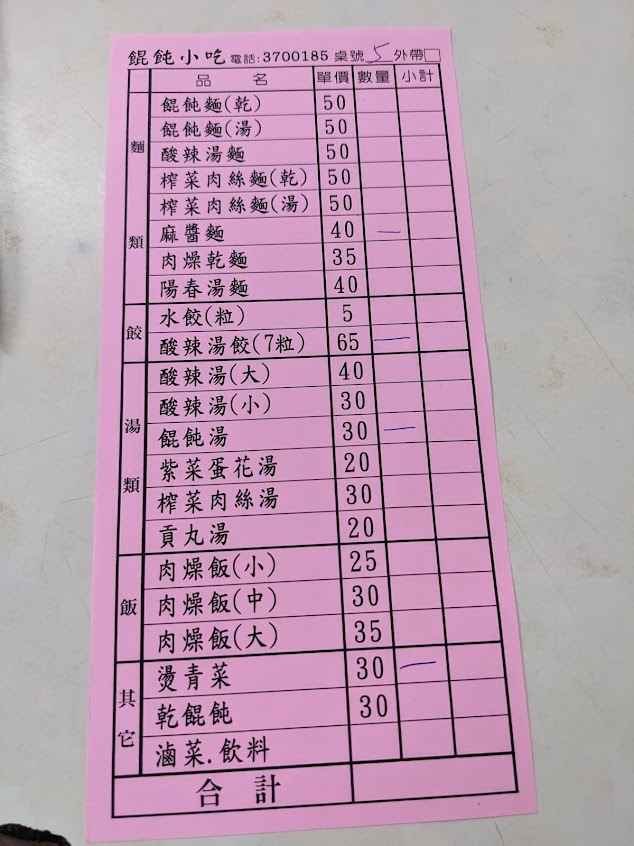 餛飩小吃 電話:3700185 桌號 5 外帶□
品名 單價 數量 小計
麵類
餛飩麵(乾) 50
餛飩麵(湯) 50
酸辣湯麵 50
榨菜肉絲麵(乾) 50
榨菜肉絲麵(湯) 50
麻醬麵 40 一
肉燥乾麵 35
陽春湯麵 40
餃
水餃(粒) 5
酸辣湯餃(7粒) 65 一
湯類
酸辣湯(大) 40
酸辣湯(小) 30
餛飩湯 30 一
紫菜蛋花湯 20
榨菜肉絲湯 30
貢丸湯 20
飯
肉燥飯(小) 25
肉燥飯(中) 30
肉燥飯(大) 35
其它
燙青菜 30 一
乾餛飩 30
滷菜.飲料
合計